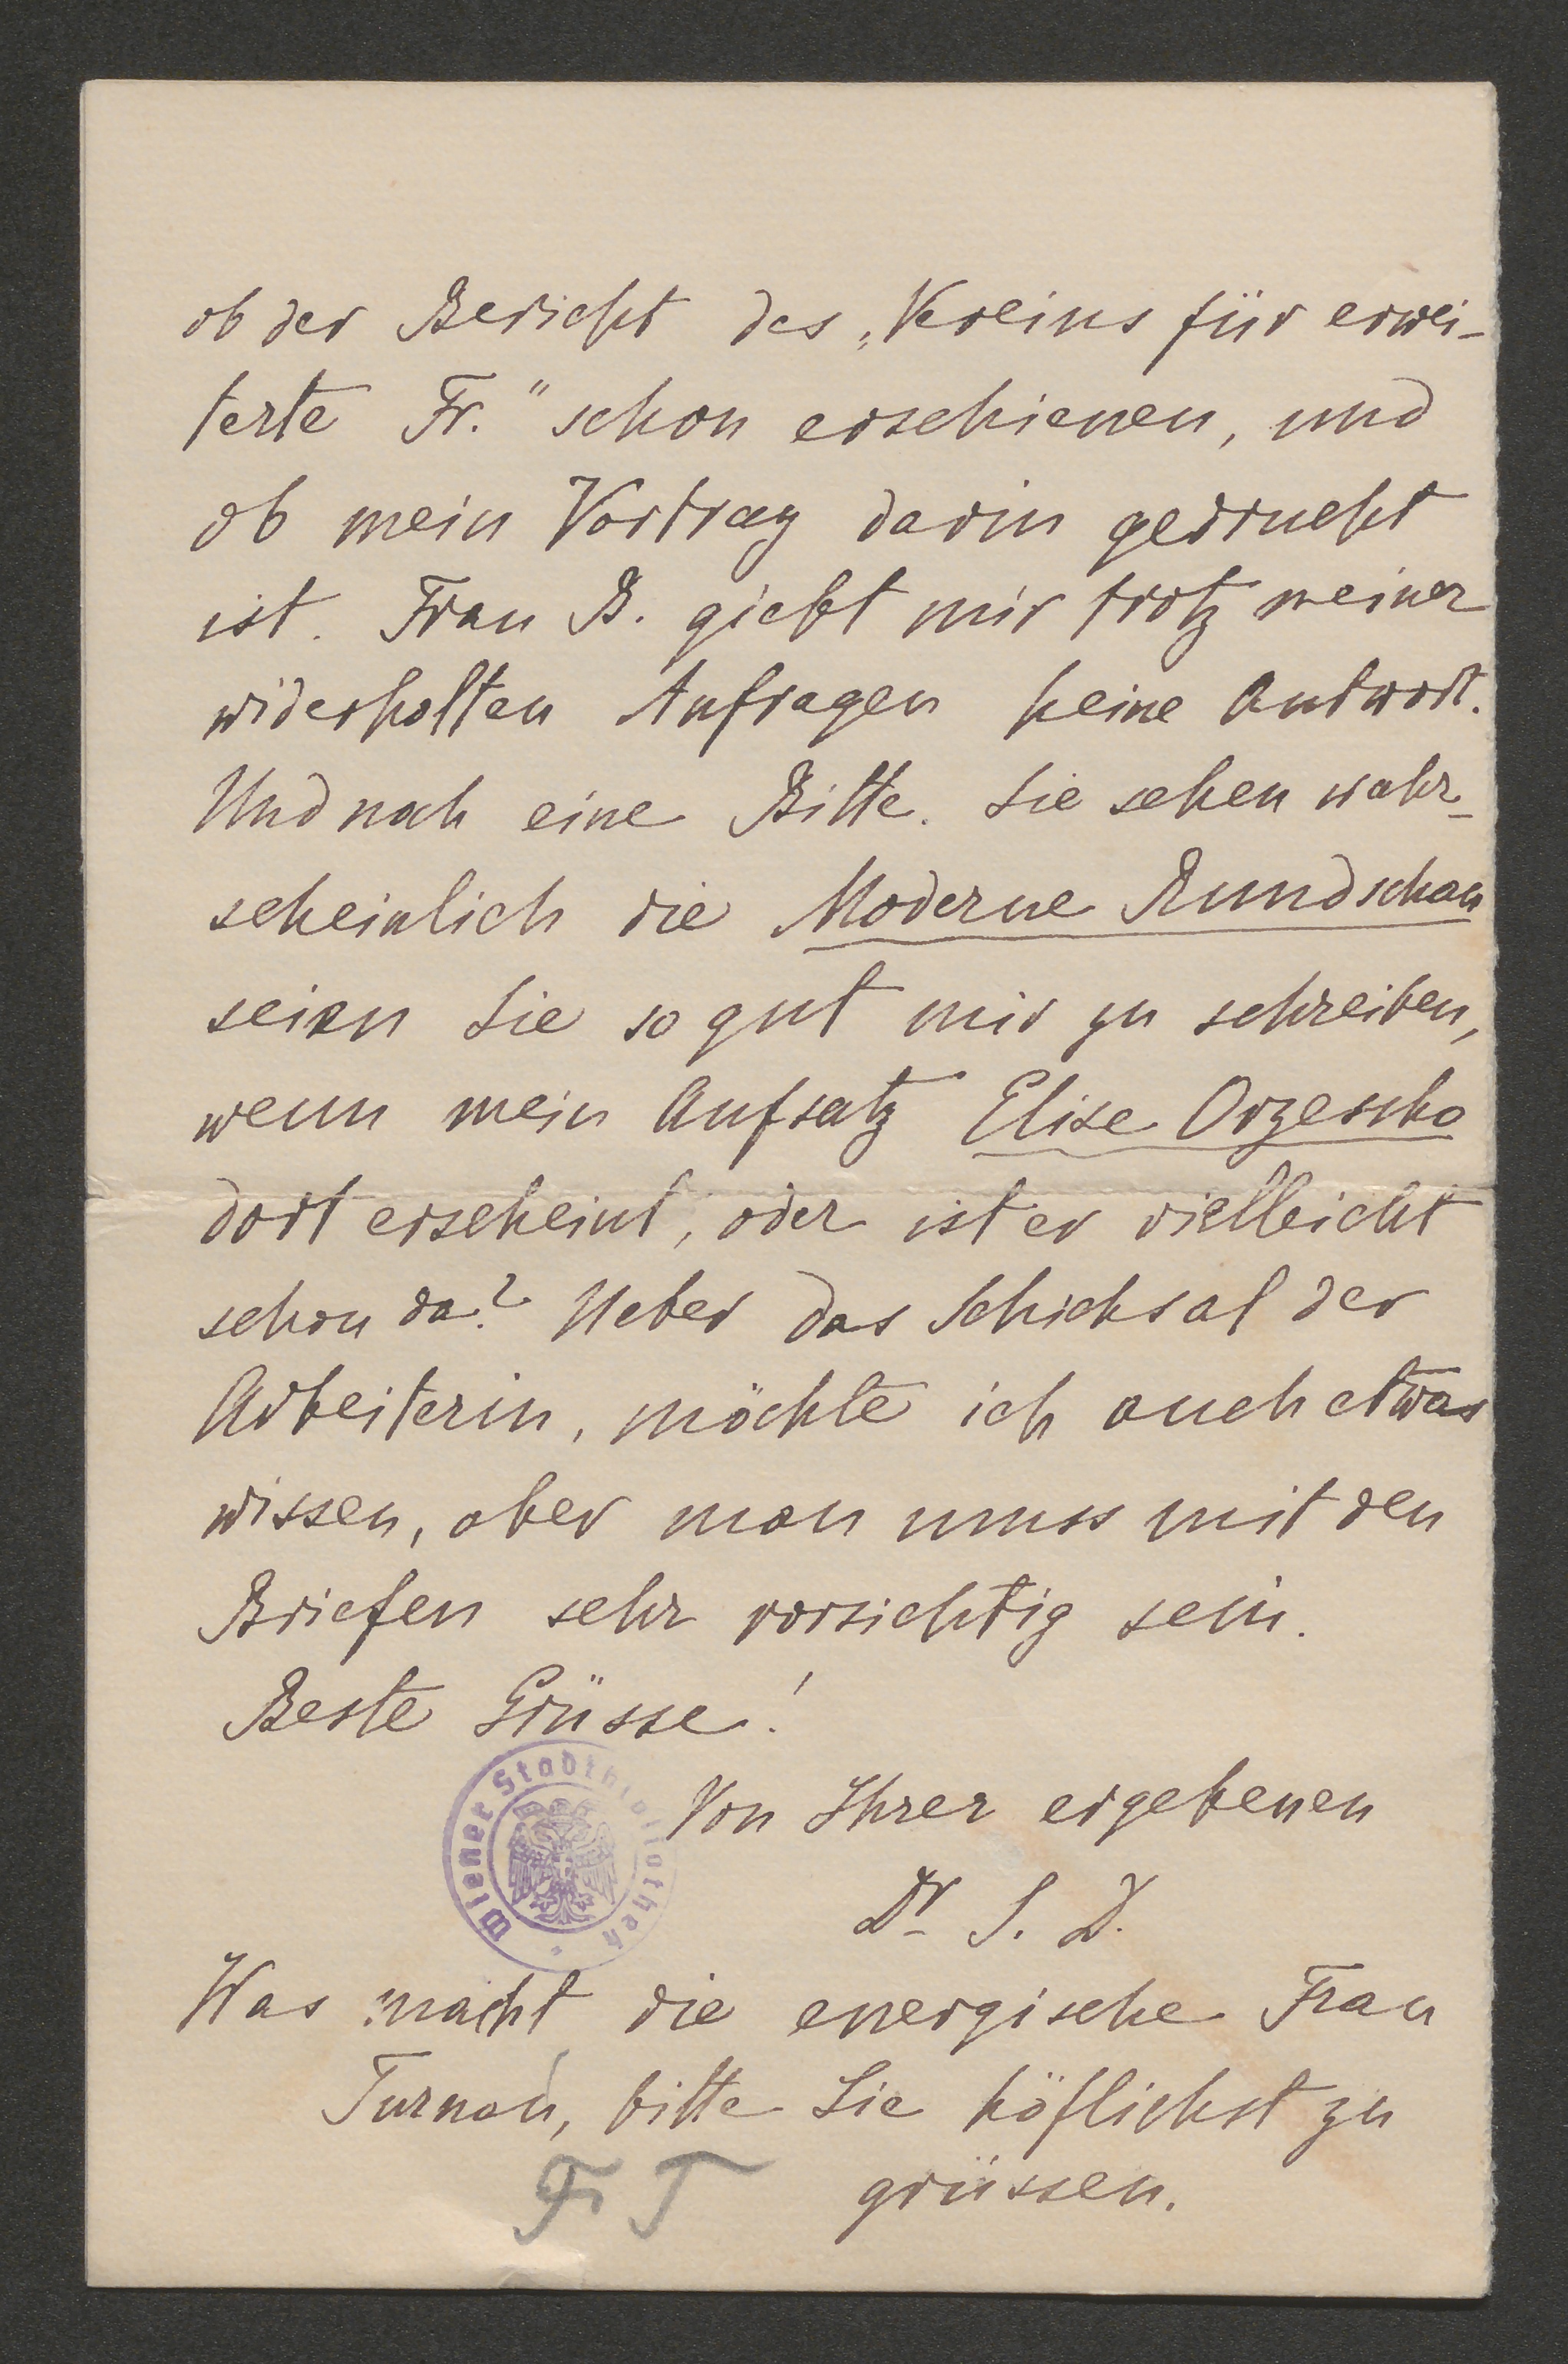 ob der Bericht des „Vereins für erwei-
terte Fr." schon erschienen, und
ob mein Vortrag darin gedruckt
ist. Frau B. giebt mir trotz meiner
widerholten Anfragen keine Antwort.
Und noch eine Bitte. Sie sehen wahr-
scheinlich die Moderne Rundschau
seien Sie so gut mir zu schreiben,
wenn mein Aufsatz Elise Orzesko
dort erscheint, oder ist er vielleicht
schon da? Ueber das Schicksal der
Arbeiterin, möchte ich auch etwas
wissen, aber man muss mit den
Briefen sehr vorsichtig sein.
Beste Grüsse!
Von Ihrer ergebenen
Dr S. D.
Wiener Stadtbibliothek
Was macht die energische Frau
Turnau, bitte Sie höflichst zu
grüssen.
Fr T